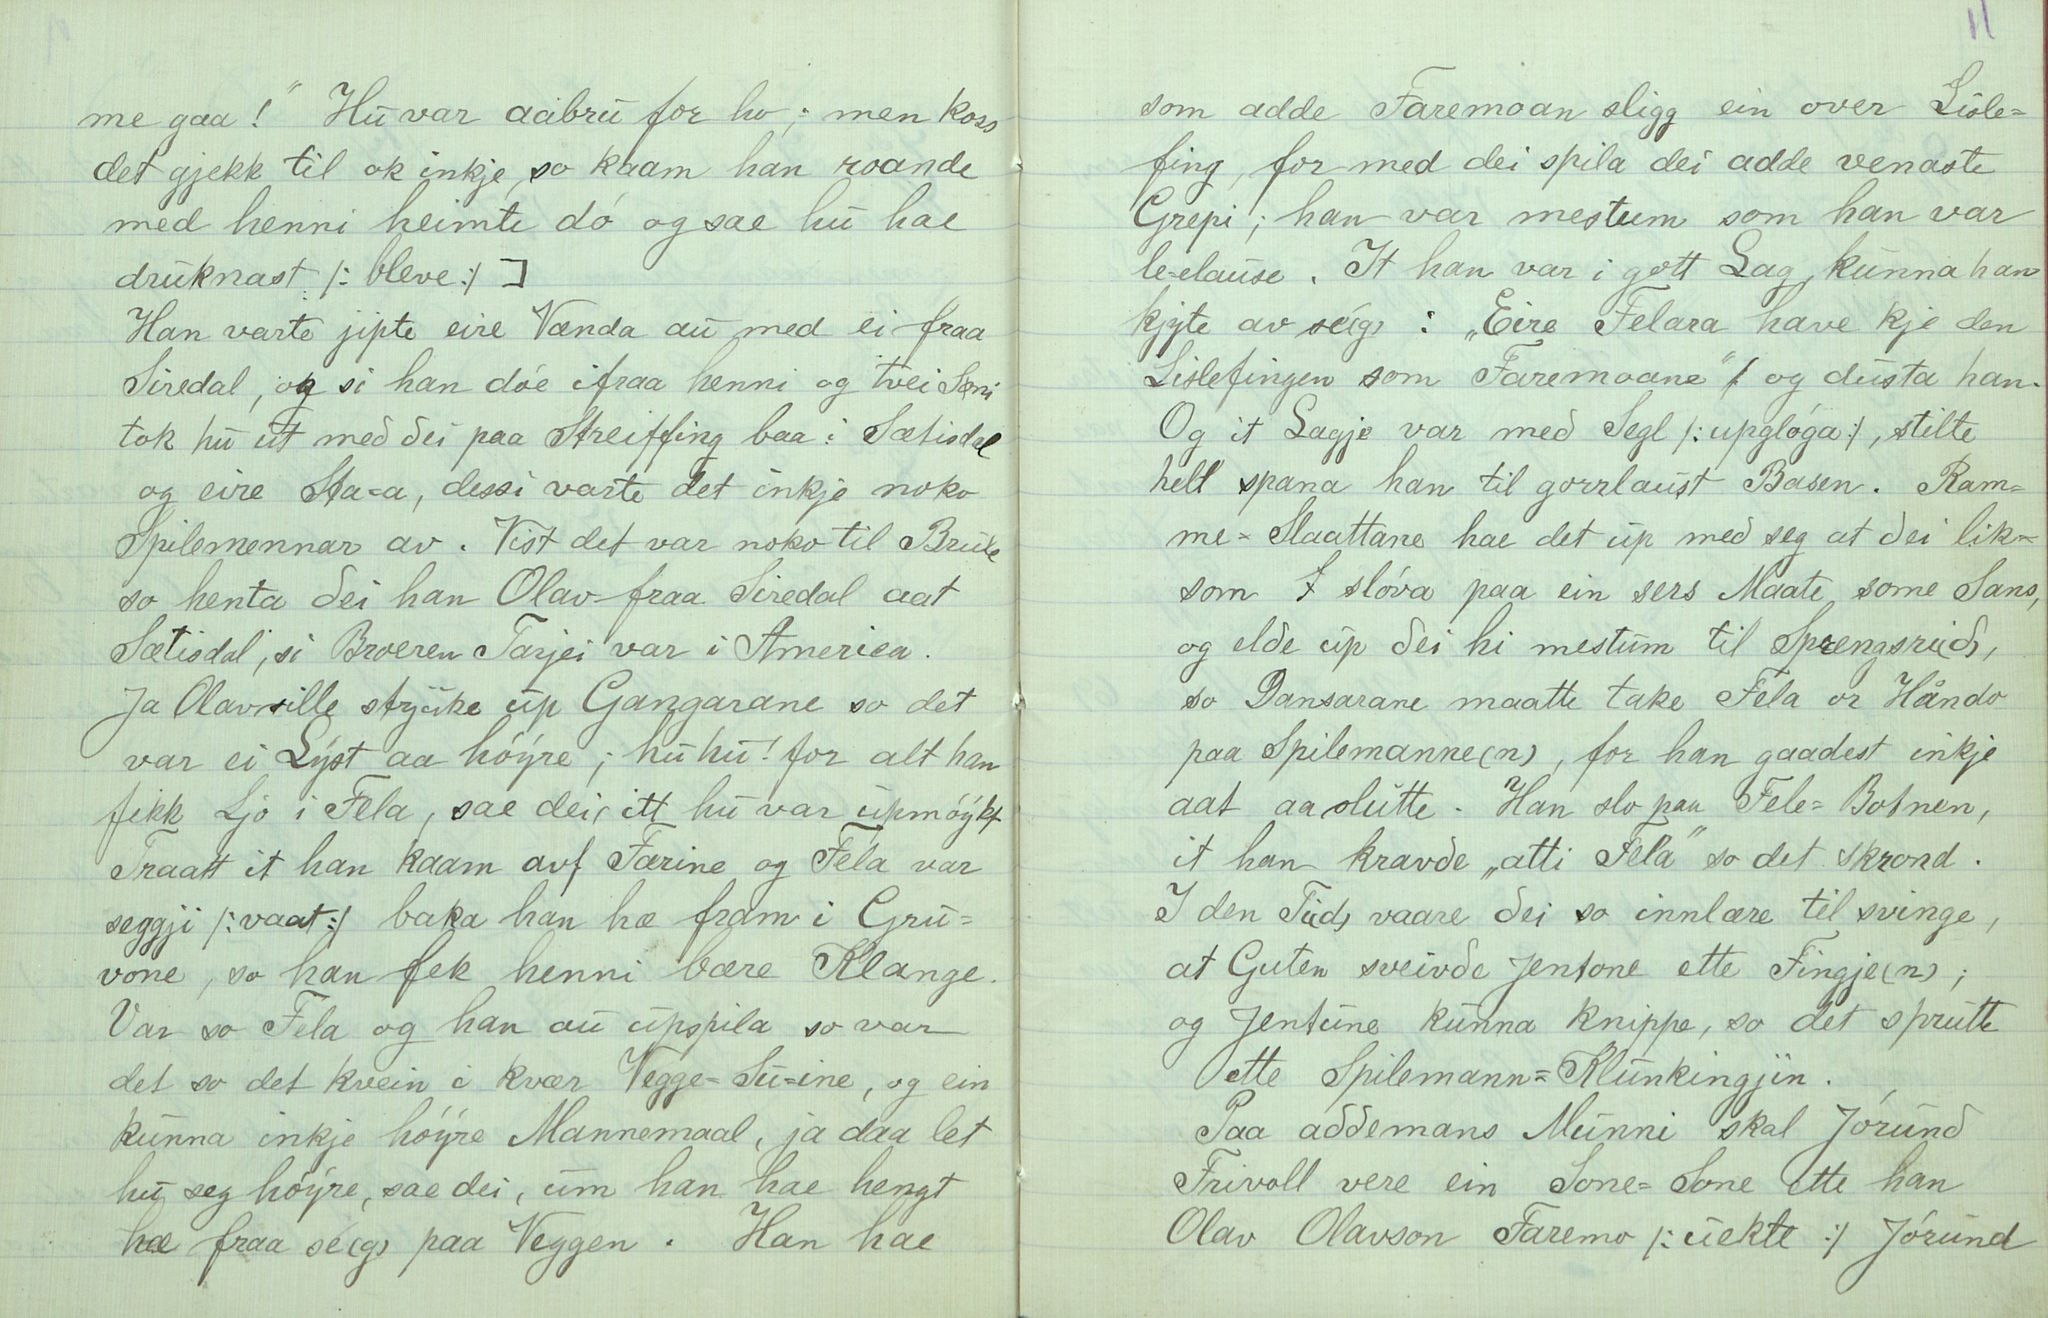 me gaa!" Hu var aabru for ho; men koss
det gjekk til ok inkje, so kaam han roande
med henni heimte dó og sae hu hae
druknast /: bleve :/ ]
Han varte jipte eire Vænda au med ei fraa
Siredal, og si han dóe ifraa henni og tvei Søni
tok hu ut med dei paa Streiffing baa i Sætisdal
og eire Sta=a, dessi varte det inkje noko
Spilemennar av. Vist det var noko til Brude
so henta dei han Olav fraa Siredal aat
Sætisdal, si Broeren Tarjei var i America.
Ja Olav sille stryuke up Gangarane so det
var ei Lyst aa høyre; hu hu! for alt han
fikk Ljo i Fela, sae dei, itt hu var upmøykt
Traatt it han kaam avf Færine og Fela var
seggji /: vaat :/ baka han hæ fram i Gru=
vone, so han fek henni bære Klange.
Var so Fela og han au upspila so var
det so det kvein i kvær Vegge=Su=ine, og ein
kunna inkje høyre Mannemaal, ja daa let
hu seg høyre, sae dei, um han hae hengt
hæ fraa se(g) paa Veggen. Han hae
11
som adde Faremoan sligg ein over Lisle=
fing, for med dei spila dei adde venaste
Grepi; han var mestum som han var
le=elause. It han var i gott Lag, kunna han
kjyte av se(g): „Eire Felara have kje den
Lislefingen som Faremoane" og dusta han.
Og it Lagje var med Segl /: upglóga :/, stilte
hell spana han til gorrlaust Basen. Ram=
me=Slaattane hae det up med seg at dei lik=
som slóva paa ein sers Maate some Sans,
og elde up dei hi mestum til Sprengsrei(d),
so Dansarane maatte take Fela or Håndo
paa Spilemanne(n), for han gaadest inkje
aat aa slutte. Han slo paa Fele=Botnen,
it han kravde „atti Fela" so det skrond.
I den Ti(d) vaare dei so innlære til svinge,
at Guten sveivde Jentone ette Fingje(n);
og Jentune kunna knippe, so det sprutte
ette Spilemann=Klunkingjin.
Paa addemans Munni skal Jórund
Frivoll vere ein Sone=Sone ette han
Olav Olavson Faremo /: uekte :/ Jórund